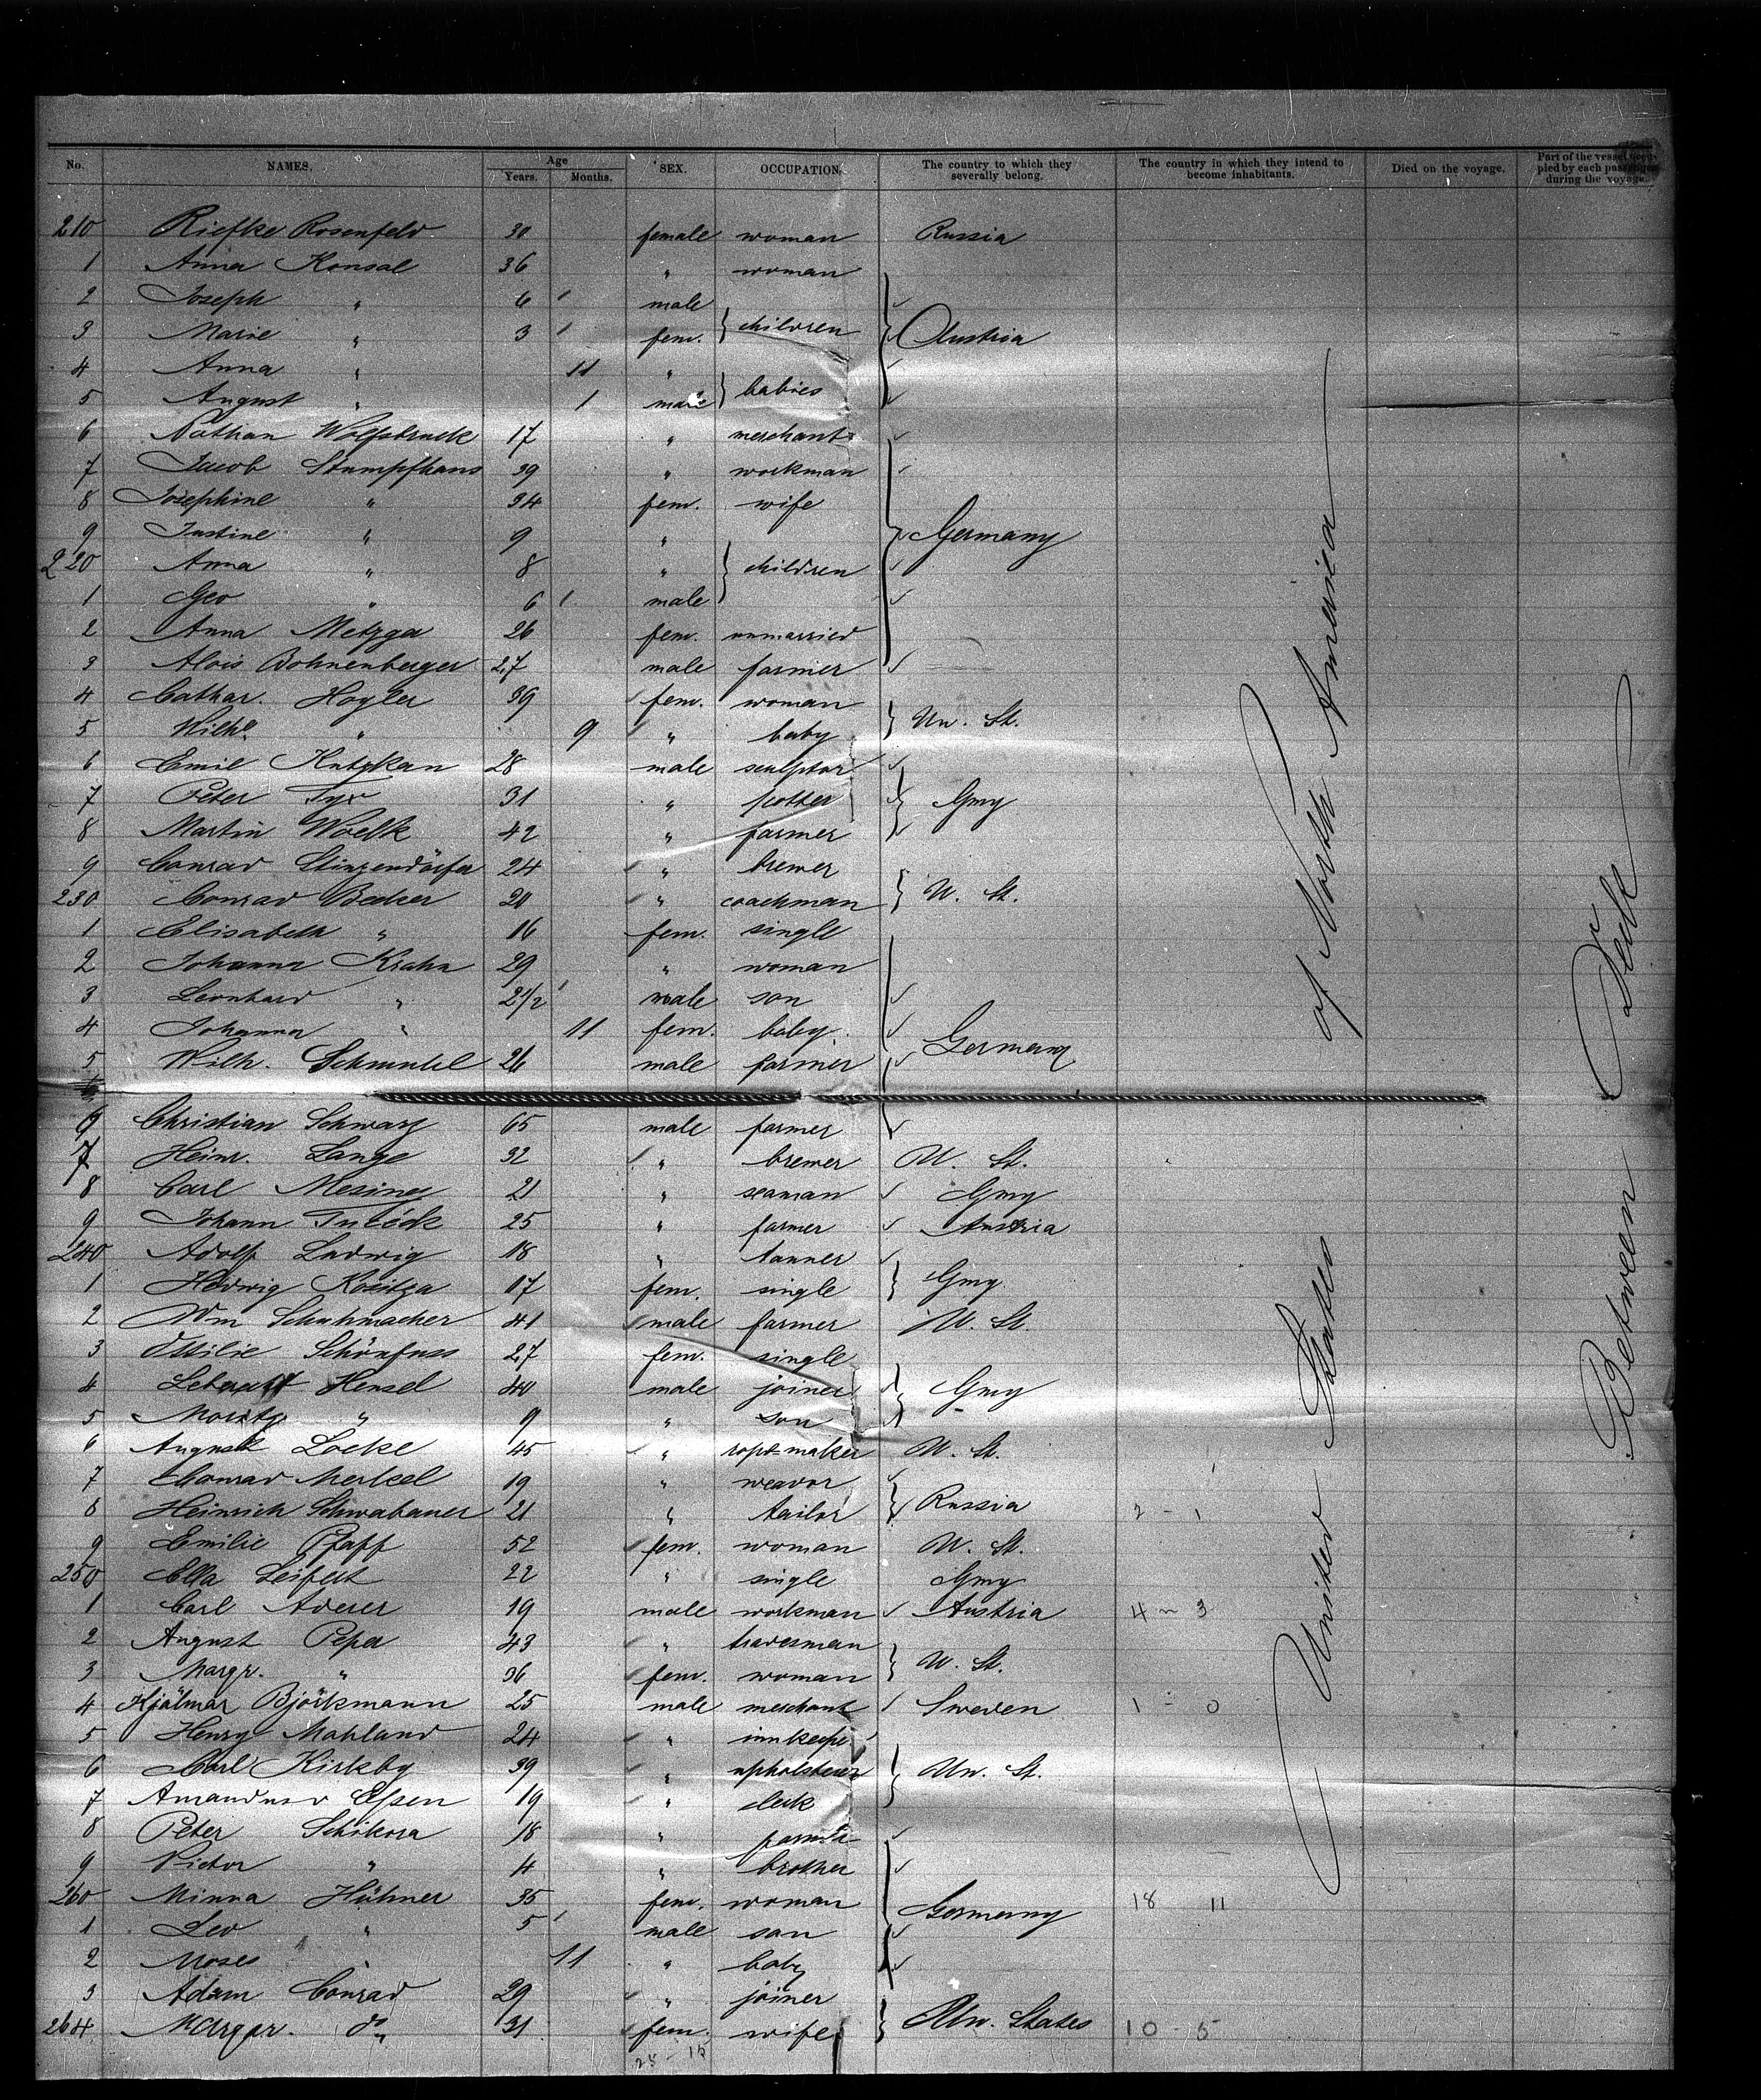 No. NAMES. Age Years. Months. SEX. OCCUPATION. The country to which they severally belong. The country in which they intend to become inhabitants. Died on the voyage. Part of the vessel occupied by each passenger during the voyage.
210 Riefke Rosenfeld 30 female woman Russia
1 Anna Konsal 36 " woman
2 Joseph " 6 male
3 Marie " 3 fem. children Austria
4 Anna " 11 "
5 August " 1 male babies
6 Nathan 17 " merchant
7 Jacob Stumpfhaus 39 " workman
8 Josephine " 34 fem. wife
9 Justine " 9 " Germany
220 Anna " 8 " children
1 Geo " 6 male
2 Anna Metzger 26 fem. unmarried
3 Alois Bohnenberger 27 male farmer
4 Cathar. Hogler 39 fem. woman
5 Wilhe. " 9 " baby Un. St.
6 Emil 28 male sculptor
7 Peter 31 " potter Gmy
8 Martin Woelk 42 " farmer
9 Conrad 24 " brewer
230 Conrad Becker 20 " coachman U. St.
1 Elisabeth " 16 fem. single
2 Johanna Krahn 29 " woman
3 Leonhard " 2 1/2 male son
4 Johanna " 11 fem. baby
5 Wilh. 26 male farmer Germany
6 Christian Schwarz 65 male farmer
7 Heinr. Lange 32 " brewer U. St.
8 Carl Mesing 21 " seaman Gmy
9 Johann 25 " farmer Austria
240 Adolf Ludwig 18 " tanner
1 Hedwig Kositza 17 fem. single Gmy.
2 Wm Schuhmacher 41 male farmer U. St.
3 Ottilie Schönfuss 27 fem. single
4 Hensel 40 male joiner Gmy
5 Moritz " 9 " son
6 August Locke 45 " rope-maker U. St.
7 Conrad Merkel 19 " weavor
8 Heinrich Schwabauer 21 " tailor Russia 2 - 1
9 Emilie Pfaff 52 fem. woman U. St.
250 Ella Leifert 22 " single Gmy
1 Carl Aderer 19 male workman Austria 4 - 3
2 August Peper 43 " tradesman
3 Margr. " 36 fem. woman U. St.
4 Hjälmar Björkmann 25 male merchant Sweden 1 - 0
5 Henry Mahland 24 " innkeeper
6 Carl Kirkby 39 " upholsterer Un. St.
7 Amandus v Essen 19 " clerk
8 Peter Schikora 18 " farmer
9 Victor " 4 " brother
260 Minna Hühner 35 fem. woman Germany 18 11
1 Leo " 5 male son
2 Moses " 11 " baby
3 Adam Conrad 29 " joiner
264 Margar. do 31 fem. wife Un. States 10 - 5
25 - 15
United States of North America
Between Deck